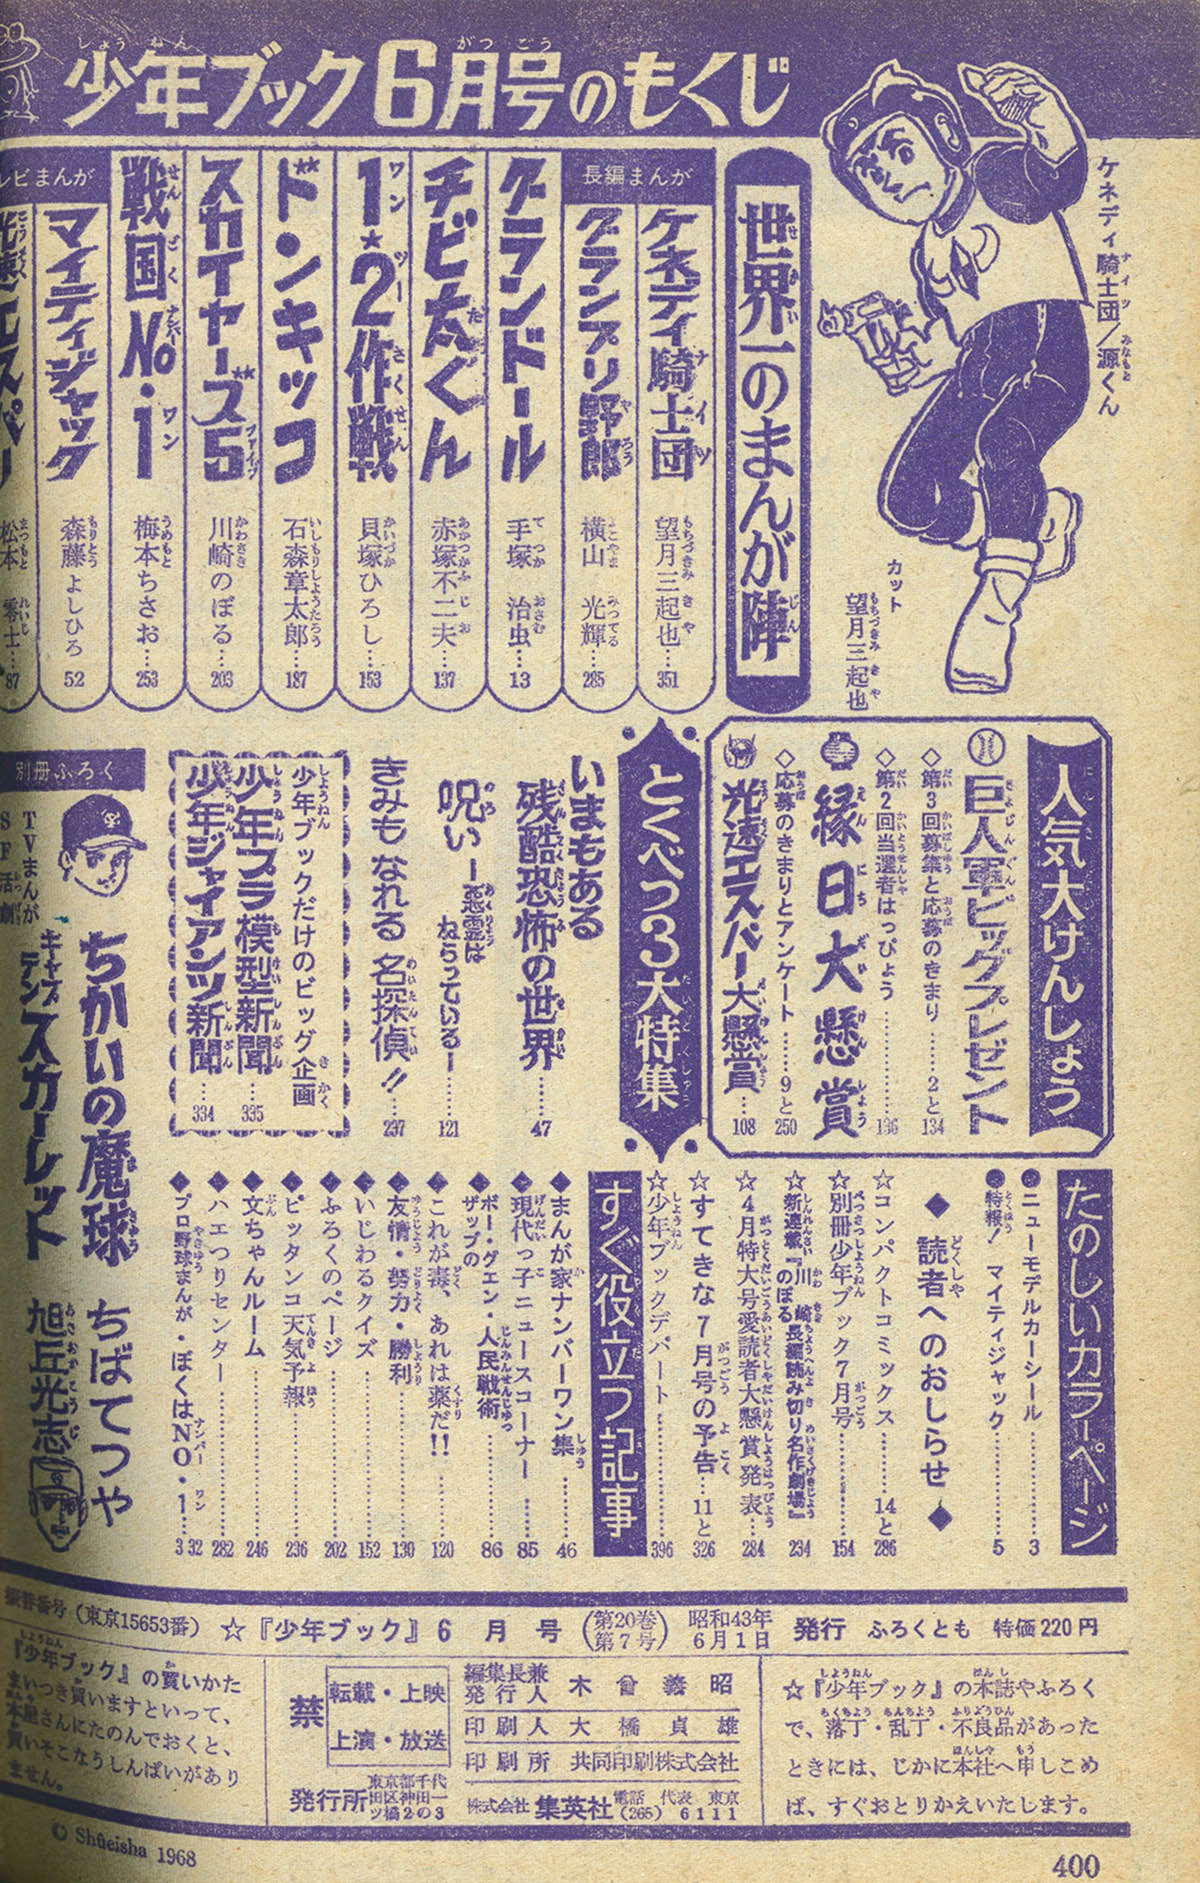 少年ブック6月号のもくじ
ケネディ騎士団/源くん
カット
望月三起也
世界一のまんが陣
長編まんが
ケネディ騎士団 望月三起也…351
グランプリ野郎 横山光輝…285
グランドール 手塚治虫…13
チビ太くん 赤塚不二夫…137
1★2作戦 貝塚ひろし…153
ドンキッコ 石森章太郎…187
スカイヤーズ5 川崎のぼる…203
戦国No.1 梅本ちさお…253
レビまんが
マイティジャック 森藤よしひろ 52
松本零士…87
人気大けんしょう
巨人軍ビッグプレゼント
◇第3回募集と応募のきまり……2と134
◇第2回当選者はっぴょう……136
縁日大懸賞
◇応募のきまりとアンケート……9と250
光速エスパー大懸賞……108
とくべつ3大特集
いまもある
残酷恐怖の世界……47
呪いー悪霊は
ねらっているー……121
きみもなれる名探偵!!……237
少年ブックだけのビッグ企画
少年プラ模型新聞……335
少年ジャイアンツ新聞……334
別冊ふろく
TVまんが
SF活劇
ちかいの魔球 ちばてつや
キャプテンスカーレット 旭丘光志
たのしいカラーページ
●ニューモデルカーシール……3
●特報!マイティジャック……5
◆読者へのおしらせ◆
☆コンパクトコミックス……14と286
☆別冊少年ブック7月号……154
☆新連載『川崎のぼる長編読み切り名作劇場』……234
☆4月特大号愛読者大懸賞発表……284
☆すてきな7月号の予告…11と326
☆少年ブックデパート……396
すぐ役立つ記事
◆まんが家ナンバーワン集……46
◆現代っ子ニュースコーナー……85
◆ボー・グエン・ザップの人民戦術……86
◆これが毒、あれは薬だ!!……120
◆友情・努力・勝利……130
◆いじわるクイズ……152
◆ふろくのページ……202
◆ピッタンコ天気予報……236
◆文ちゃんルーム……246
◆ハエつりセンター……282
◆プロ野球まんが・ぼくはNO・1……332
振替番号(東京15653番) ☆『少年ブック』6月号(第20巻第7号)昭和43年6月1日 発行 ふろくとも 特価220円
☆『少年ブック』の本誌やふろく
で、落丁・乱丁・不良品があった
ときには、じかに本社へ申しこめ
ば、すぐおとりかえいたします。
編集長兼発行人 木曾義昭
印刷人 大橋貞雄
印刷所 共同印刷株式会社
株式会社 集英社 電話(265)代表 東京6111
禁 転載・上映
上演・放送
発行所 東京都千代田区神田一ツ橋2の3
『少年ブック』の買いかた
まいつき買いますといって、
本屋さんにたのんでおくと、
買いそこなうしんぱいがあり
ません。
© Shūeisha 1968
400